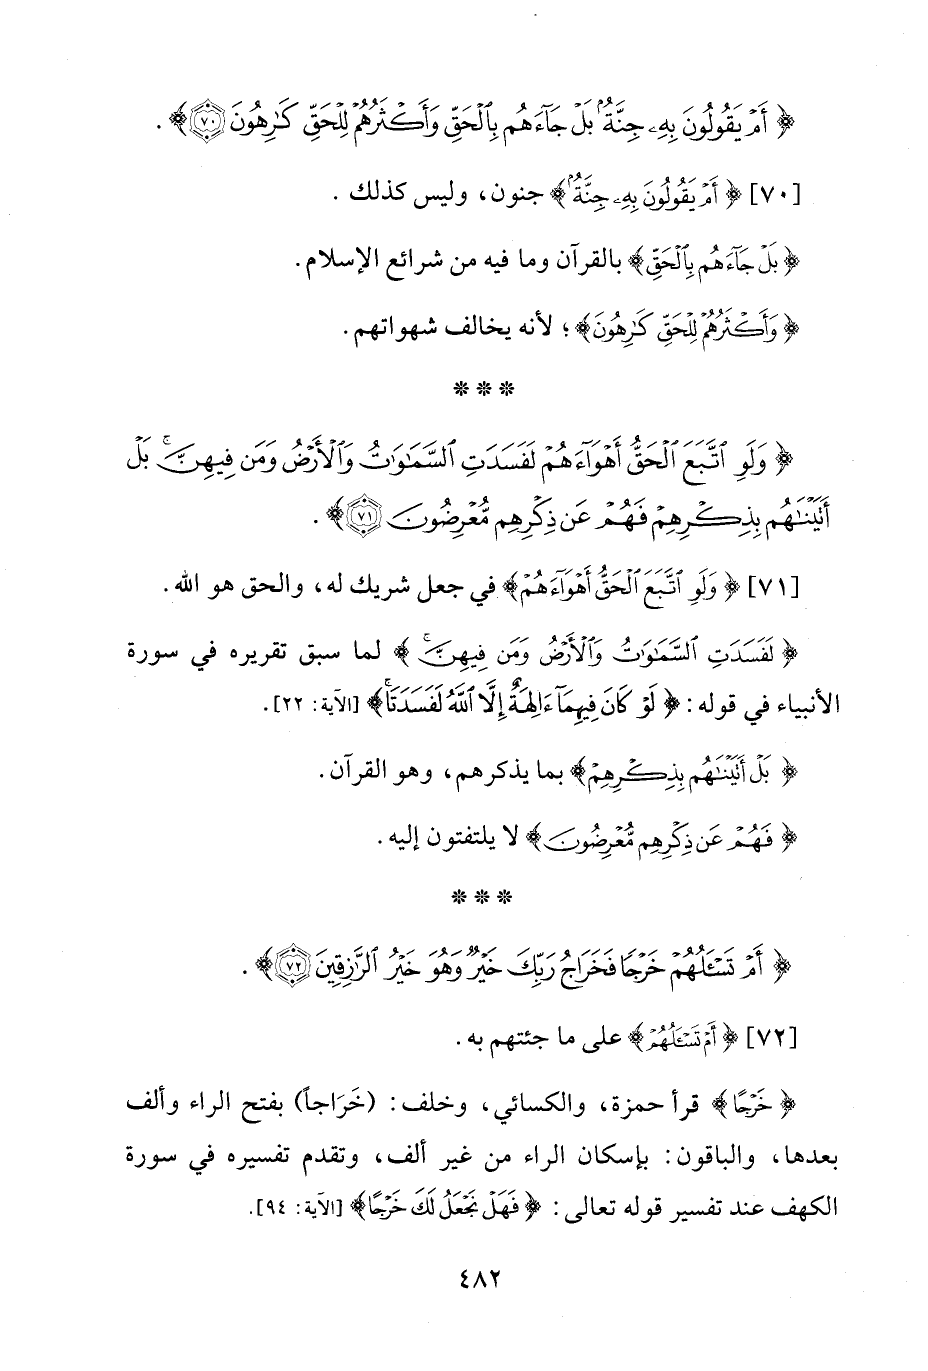 ﴿ أَمْ يَقُولُونَ بِهِۦ جِنَّةٌۢ ۚ بَلْ جَآءَهُم بِٱلْحَقِّ وَأَكْثَرُهُمْ لِلْحَقِّ كَٰرِهُونَ ٧٠﴾ .
[٧٠] ﴿ أَمْ يَقُولُونَ بِهِۦ جِنَّةٌۢ ۚ﴾ جنون، وليس كذلك .
﴿ بَلْ جَآءَهُم بِٱلْحَقِّ﴾ بالقرآن وما فيه من شرائع الإسلام.
﴿ وَأَكْثَرُهُمْ لِلْحَقِّ كَٰرِهُونَ﴾؛ لأنه يخالف شهواتهم.
* * *
﴿ وَلَوِ ٱتَّبَعَ ٱلْحَقُّ أَهْوَآءَهُمْ لَفَسَدَتِ ٱلسَّمَٰوَٰتُ وَٱلْأَرْضُ وَمَن فِيهِنَّ ۚ بَلْ
أَتَيْنَٰهُم بِذِكْرِهِمْ فَهُمْ عَن ذِكْرِهِم مُّعْرِضُونَ ٧١﴾ .
[٧١] ﴿ وَلَوِ ٱتَّبَعَ ٱلْحَقُّ أَهْوَآءَهُمْ﴾ في جعل شريك له، والحق هو الله.
﴿ لَفَسَدَتِ ٱلسَّمَٰوَٰتُ وَٱلْأَرْضُ وَمَن فِيهِنَّ ۚ ﴾ لما سبق تقريره في سورة
الأنبياء في قوله: ﴿ لَوْ كَانَ فِيهِمَآ ءَالِهَةٌ إِلَّا ٱللَّهُ لَفَسَدَتَا ۚ﴾ [الآية: ٢٢].
﴿ بَلْ أَتَيْنَٰهُم بِذِكْرِهِمْ﴾ بما يذكرهم، وهو القرآن.
﴿ فَهُمْ عَن ذِكْرِهِم مُّعْرِضُونَ﴾ لا يلتفتون إليه.
* * *
﴿ أَمْ تَسْـَٔلُهُمْ خَرْجًا فَخَرَاجُ رَبِّكَ خَيْرٌ ۖ وَهُوَ خَيْرُ ٱلرَّٰزِقِينَ ٧٢﴾ .
[٧٢] ﴿ أَمْ تَسْـَٔلُهُمْ﴾ على ما جئتهم به.
﴿ خَرْجًا﴾ قرأ حمزة، والكسائي، وخلف: (خَرَاجاً) بفتح الراء وألف
بعدها، والباقون: بإسكان الراء من غير ألف، وتقدم تفسيره في سورة
الكهف عند تفسير قوله تعالى: ﴿ فَهَلْ نَجْعَلُ لَكَ خَرْجًا﴾ [الآية: ٩٤].
٤٨٢